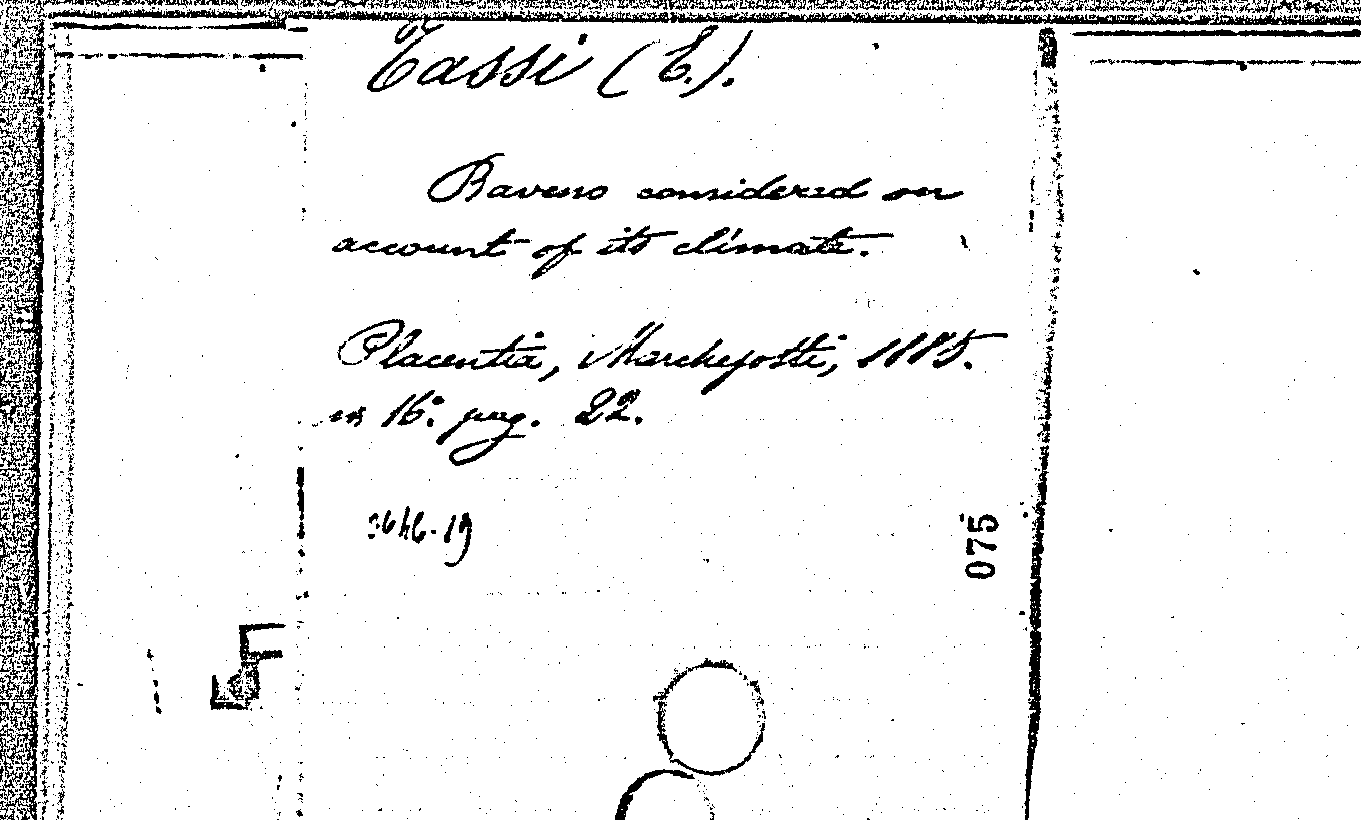 Tassi (E.).
Baveno considered on
account of its climate.
Placentia, Marchesotti, 1885.
in 16.° pag. 22.
075